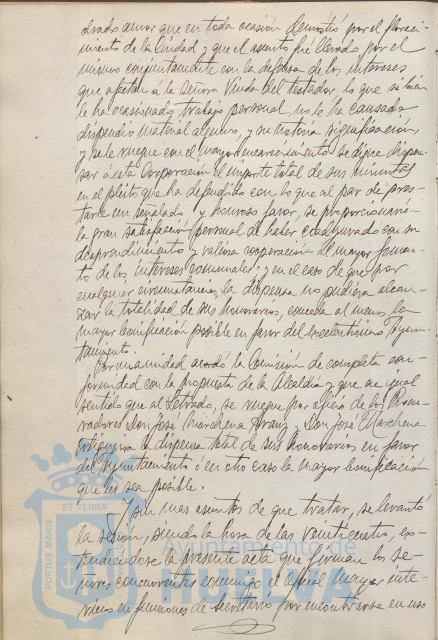 drado amor que en toda ocasión demostró por el floreci-
miento de la Ciudad y que el asunto fue llevado por el
mismo conjuntamente con la defensa de los intereses
que afectan a la Señora Viuda del testador, lo que si bien
le ha ocasionado trabajo personal, no le ha causado
dispendio material alguno, y su notoria significación,
y se le ruegue con el mayor encarecimiento se digne dispen-
sar a esta Corporación el importe total de sus minutas
en el pleito que ha defendido con lo que al par de pres-
tarle un señalado y honroso favor, se proporcionará
la gran satisfacción personal de haber coadyuvado con su
desprendimiento y valiosa cooperación al mayor fomen-
to de los intereses comunales; y en el caso de que por
cualquier circunstancia la dispensa no pudiera alcan-
zar la totalidad de sus honorarios, conceda al menos la
mayor bonificación posible en favor del Excelentísimo Ayun-
tamiento.
Por unanimidad acordó la Comisión de completa con-
formidad con la propuesta de la Alcaldía y que en igual
sentido que al Letrado, se ruegue por oficio de los Procu-
radores Don José Marchena y Don José Marchena
la dispensa total de sus honorarios en favor
del Ayuntamiento o en otro caso la mayor bonificación
que les sea posible.
Y sin mas asuntos de que tratar, se levantó
la sesión, siendo la hora de las veinticuatro, ex-
tendiéndose la presente acta que firman los se-
ñores concurrentes conmigo el Oficial mayor inte-
rino en funciones de Secretario por encontrarse en uso
PORTUS MARIS ET TERRAE
Ayuntamiento de
HUELVA